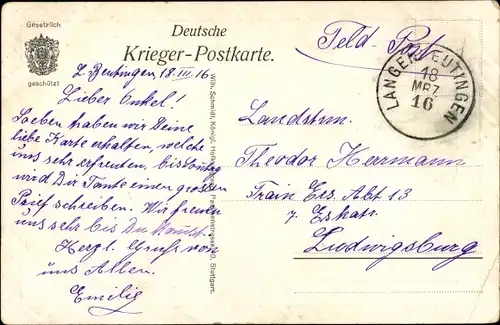 Gesetzlich
geschützt
Deutsche
Krieger-Postkarte.
Feld-Post
LANGENBEUTINGEN
18
MRZ
16
L. Beutingen 18. III. 16
Lieber Onkel!
Soeben haben wir Deine
liebe Karte erhalten, welche
uns sehr erfreuten, bis Sonntag
wird Dir Tante einen großen
Brief schreiben. Wir freuen
uns sehr bis Du kommst.
Herzl. Gruß von
uns Allen.
Emilie
Wilh. Schmidt, Königl.
Stuttgart.
Landstrm.
Theodor Herrmann
Train Ers. Abt 13
7. Eskatr.
Ludwigsburg